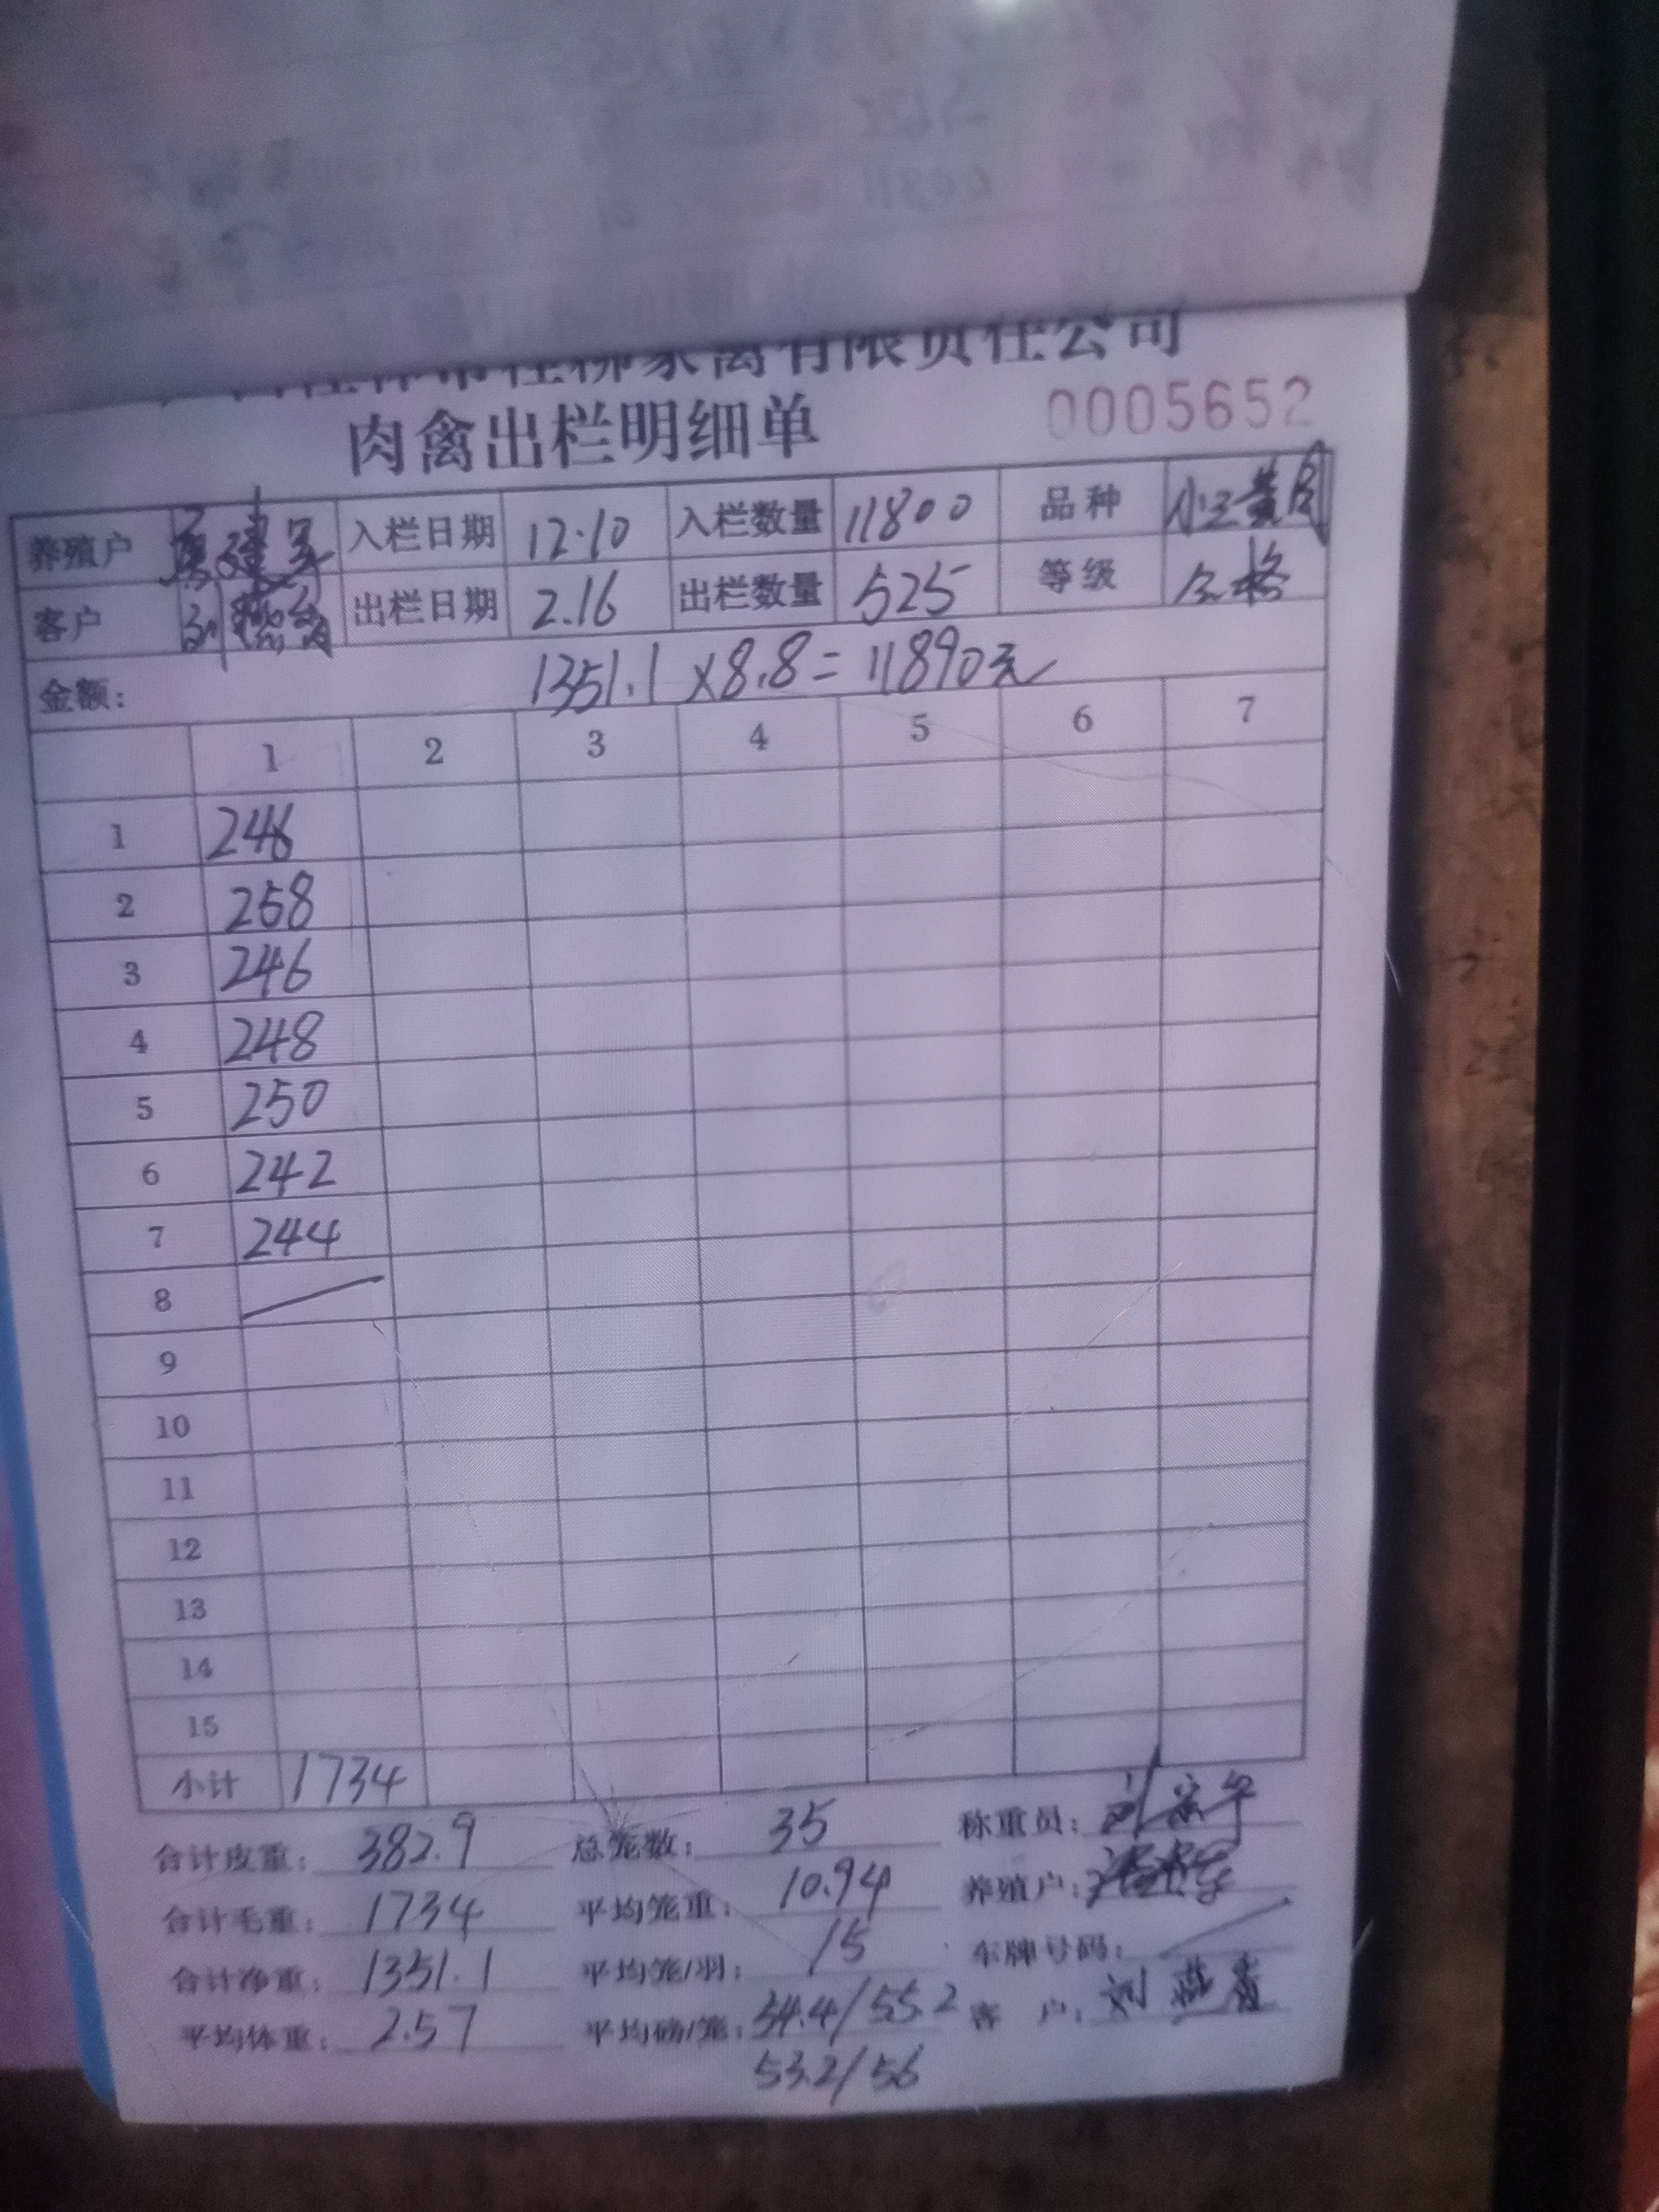 桂林市桂柳家禽有限责任公司
肉禽出栏明细单 0005652
养殖户 建军 入栏日期 12.10 入栏数量 11800 品种
客户 刘燕 出栏日期 2.16 出栏数量 525 等级 合格
金额: 1351.1×8.8=11890元
1 2 3 4 5 6 7
1 246
2 258
3 246
4 248
5 250
6 242
7 244
8
9
10
11
12
13
14
15
小计 1734
合计皮重: 382.9 总笼数: 35 称重员: 刘
合计毛重: 1734 平均笼重: 10.94 养殖户:
合计净重: 1351.1 平均笼/羽: 15 车牌号码:
平均体重: 2.57 平均磅/笼: 54.4/55.2 客户: 刘燕
53.2/56